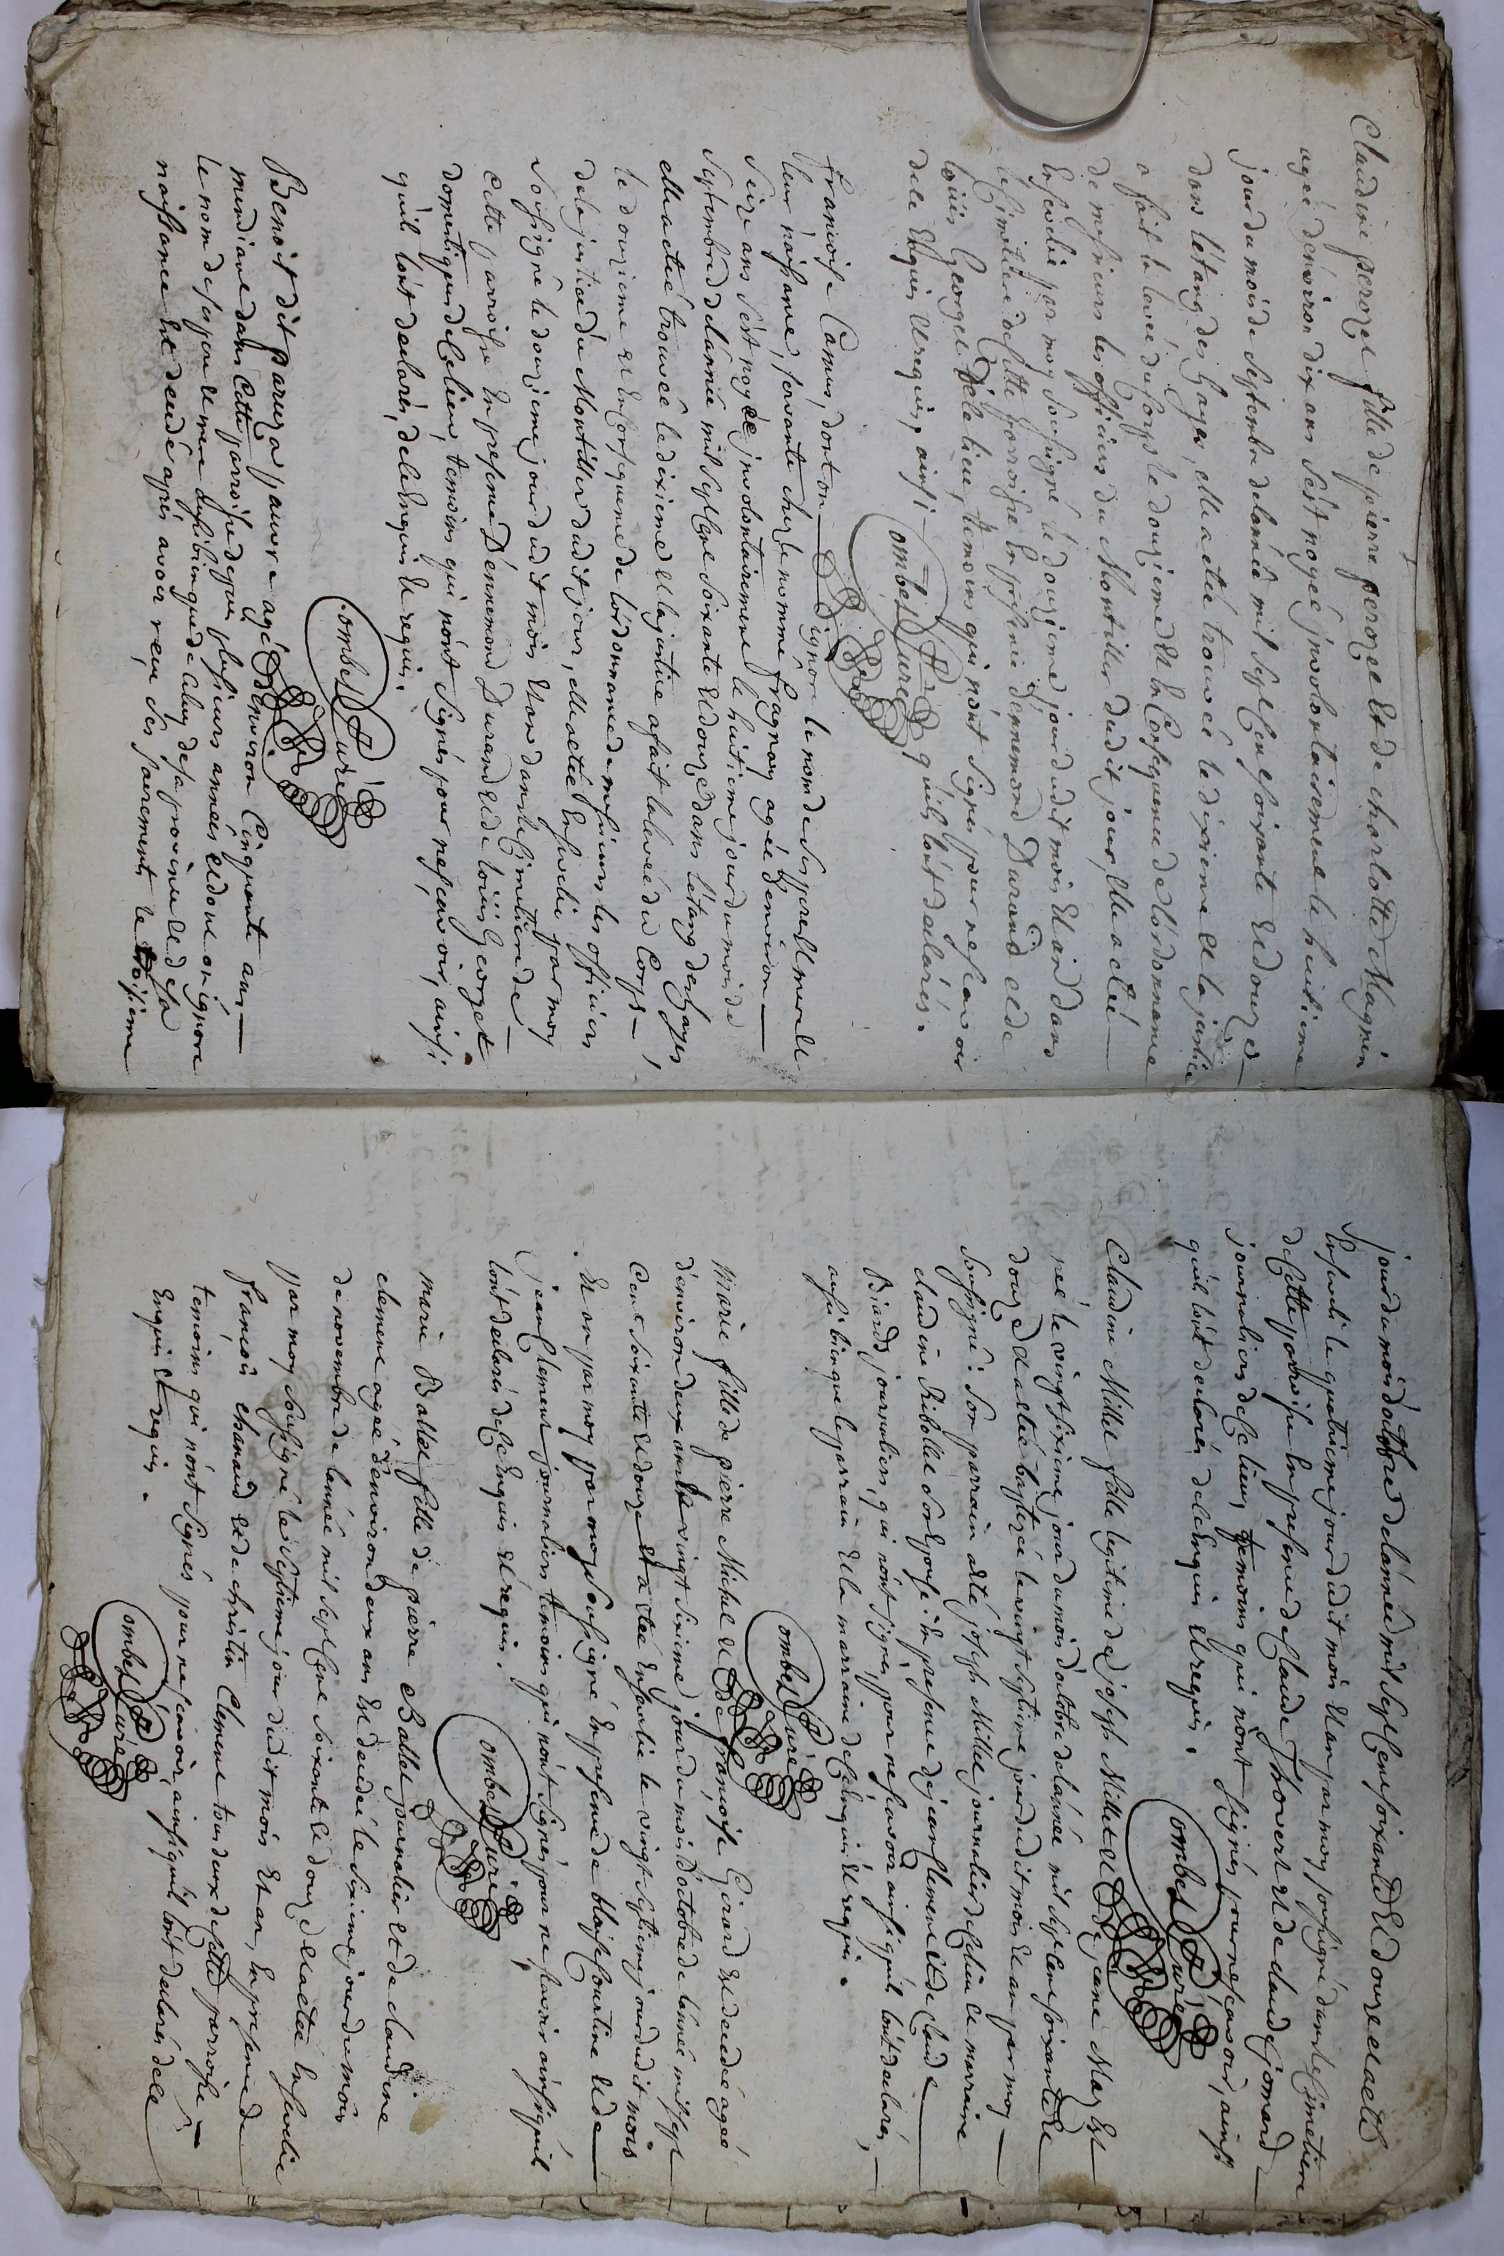 Claudine perozet fille de pierre perozet et de charlotte Magnin
agée d'environ dix ans s'est noyée involontairement le huitieme
jour du mois de septembre de l'année mil sept cent soixante et douze
dans l'étang des hayes, elle a eté trouvée le dixieme et la justice
a fait la levée du corps le douzieme et en consequence de l'ordonnance
de messieurs les officiers du Montillier dudit jour, elle a eté
ensevelie par moy soussigné le douzieme jour dudit mois et an dans
le cimetiere de cette parroisse en presence d'ennemond Durand et de
loüis Georget de ce lieu, temoins qui n'ont signés pour ne scavoir
de ce enquis et requis, ainsi qu'ils l'ont declarés.
Combes Curé
francoise Camus, dont on ignore le nom de ses pere et mere et
leur naissance, servante chez le nommé fragnay agée d'environ
seize ans s'est noyée involontairement le huitieme jour du mois de
septembre de l'année mil sept cent soixante et douze dans l'étang des hayes
elle a eté trouvée le dixieme et la justice a fait la levée du corps
le douzieme et en consequence de l'ordonnance de messieurs les officiers
de la justice du Montillier dudit jour, elle a eté ensevelie par moy
soussigné le douzieme jour dudit mois et an dans le cimetiere de
cette parroisse en presence d'ennemond Durand et de loüis Georget
domestiques de ce lieu, temoins qui n'ont signés pour ne scavoir, ainsi
qu'ils l'ont declarés, de ce enquis et requis.
Combes Curé
Benoit dit paruza pauvre agé d'environ cinquante ans
mendiant dans cette parroisse depuis plusieurs années et dont on ignore
le nom de ses pere et mere aussi bien que de celuy de sa province et de sa
naissance est decedé après avoir reçu ses sacrements le troisieme
jour du mois d'octobre de l'année mil sept cent soixante et douze et a eté
enseveli le quatrieme jour dudit mois et an par moy soussigné dans le cimetiere
de cette parroisse en presence de claude Thovert et de claude jomard
journaliers de ce lieu, temoins qui n'ont signés pour ne scavoir, ainsi
qu'ils l'ont declarés de ce enquis et requis.
Combes Curé
Claudine Millet fille legitime de joseph Millet et de jeane May est
née le vingt sixieme jour du mois d'octobre de l'année mil sept cent soixante et
douze et a eté baptizée le vingt septieme jour dudit mois et an par moy
soussigné: son parrain a eté joseph Millet journalier de ce lieu et marraine
claudine Ribollet son epouse: en presence de jean clement et de claude
Biard journaliers, qui n'ont signés pour ne scavoir ainsi qu'ils l'ont declarés,
aussi bien que le parrain et la marraine de ce enquis et requis.
Combes Curé
Marie fille de pierre Michel et de francoise Girard est decedée agée
d'environ deux ans le vingt sixieme jour du mois d'octobre de l'année mil sept
cent soixante et douze et a eté ensevelie le vingt septieme jour dudit mois
et an par moy soussigné en presence de blaise courtine et de
jean clement journaliers temoins qui n'ont signés pour ne scavoir ainsi qu'ils
l'ont declarés de ce enquis et requis.
Combes Curé
Marie Ballet fille de pierre Ballet journalier et de claudine
clement agée d'environ deux ans est decedée le sixieme jour du mois
de novembre de l'année mil sept cent soixante et douze et a eté ensevelie
par moy soussigné le septieme jour dudit mois et an, en presence de
francois chanaud et de christin clement tous deux de cette parroisse
temoins qui n'ont signés pour ne scavoir, ainsi qu'ils l'ont declarés de ce
enquis et requis.
Combes Curé